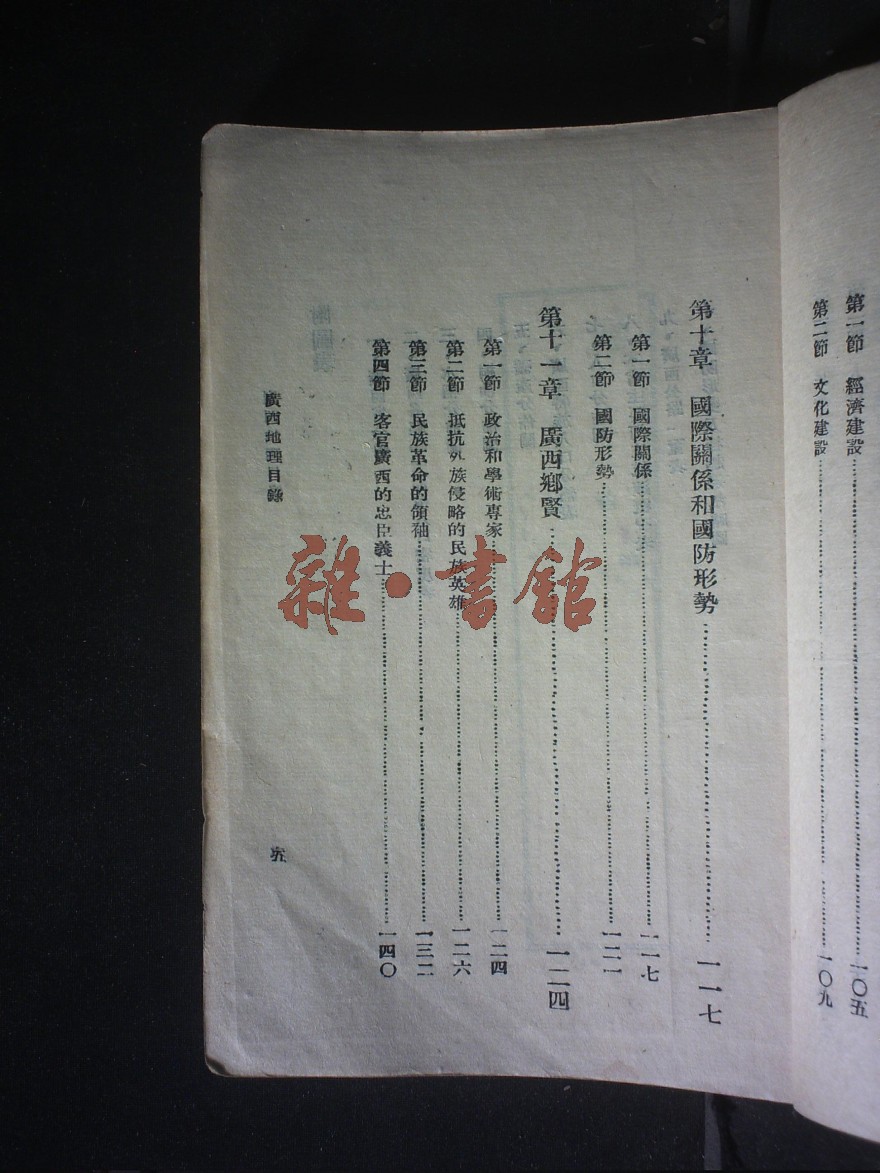 第一節 經濟建設……一〇五
第二節 文化建設……一〇九
第十章 國際關係和國防形勢……一一七
第一節 國際關係……一一七
第二節 國防形勢……一二一
第十一章 廣西鄉賢……一二四
第一節 政治和學術專家……一二四
第二節 抵抗外族侵略的民族英雄……一二六
第三節 民族革命的領袖……一三二
第四節 客官廣西的忠臣義士……一四〇
廣西地理目錄
五
雜·書館